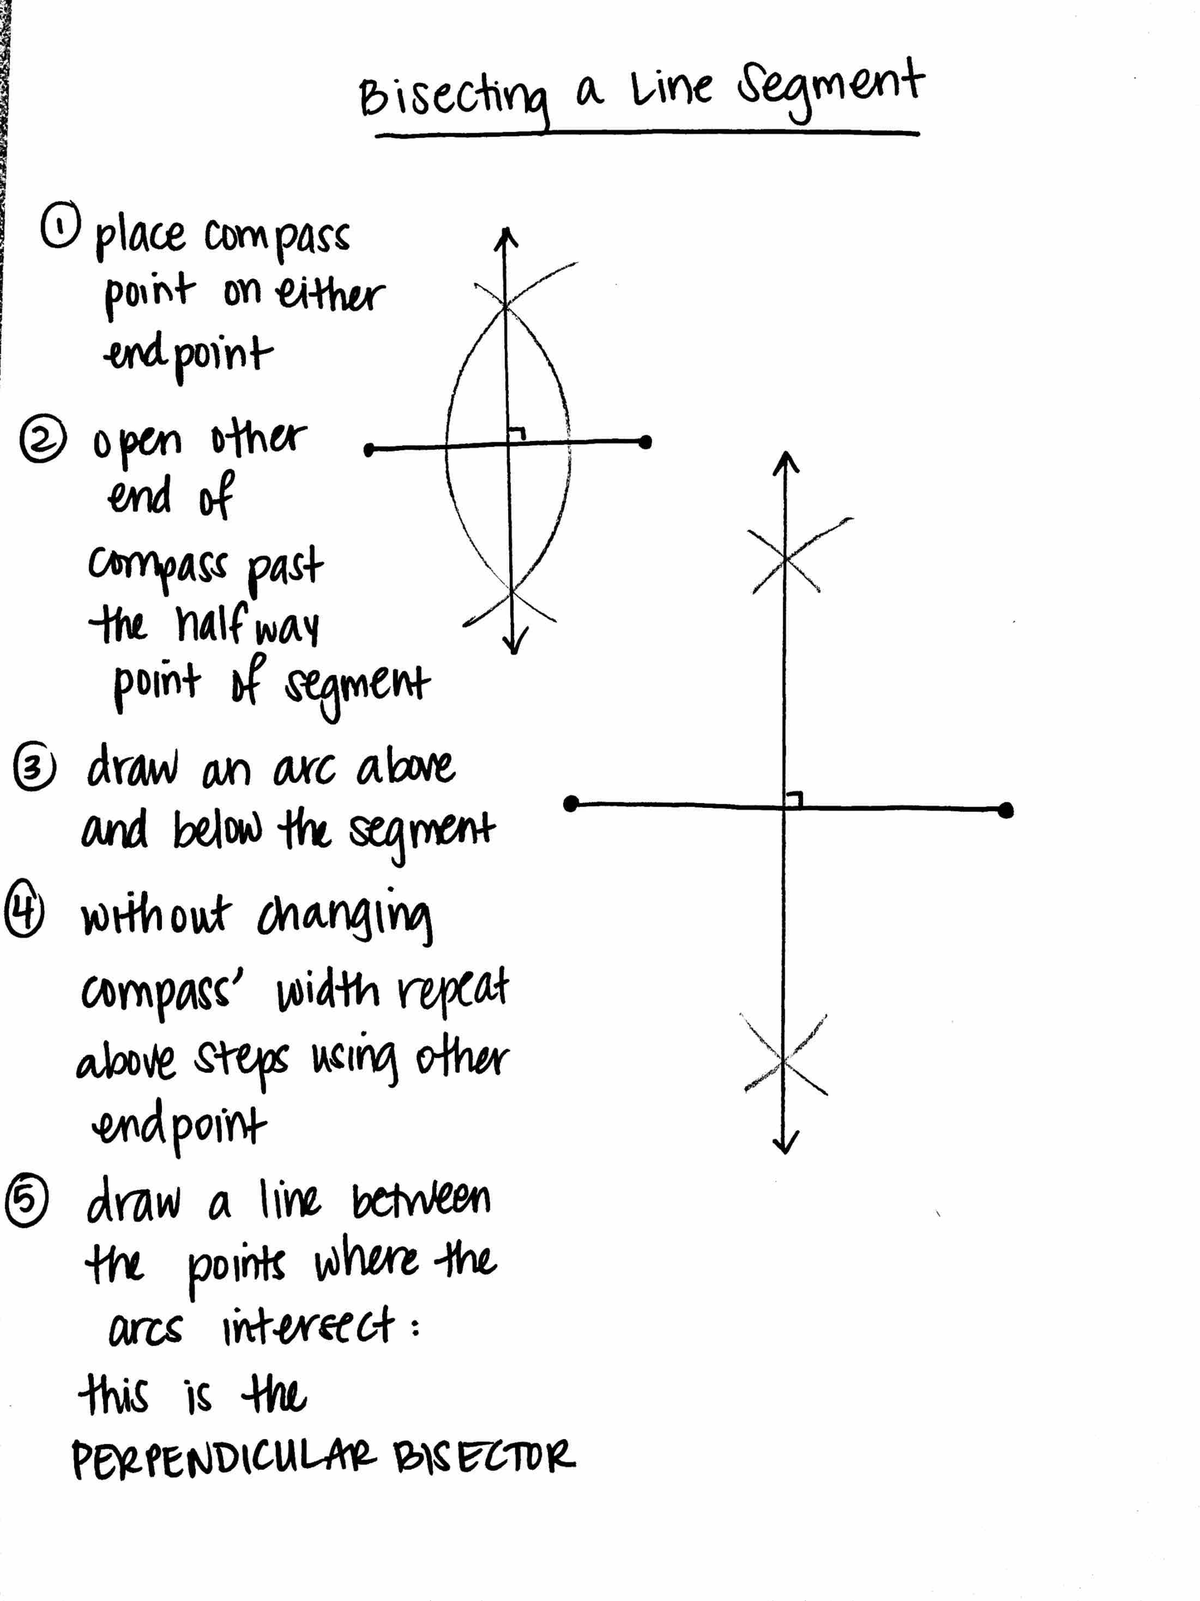 Bisecting a Line Segment
① place compass
point on either
endpoint
② open other
end of
compass past
the halfway
point of segment
③ draw an arc above
and below the segment
④ without changing
compass' width repeat
above steps using other
endpoint
⑤ draw a line between
the points where the
arcs intersect:
this is the
PERPENDICULAR BISECTOR